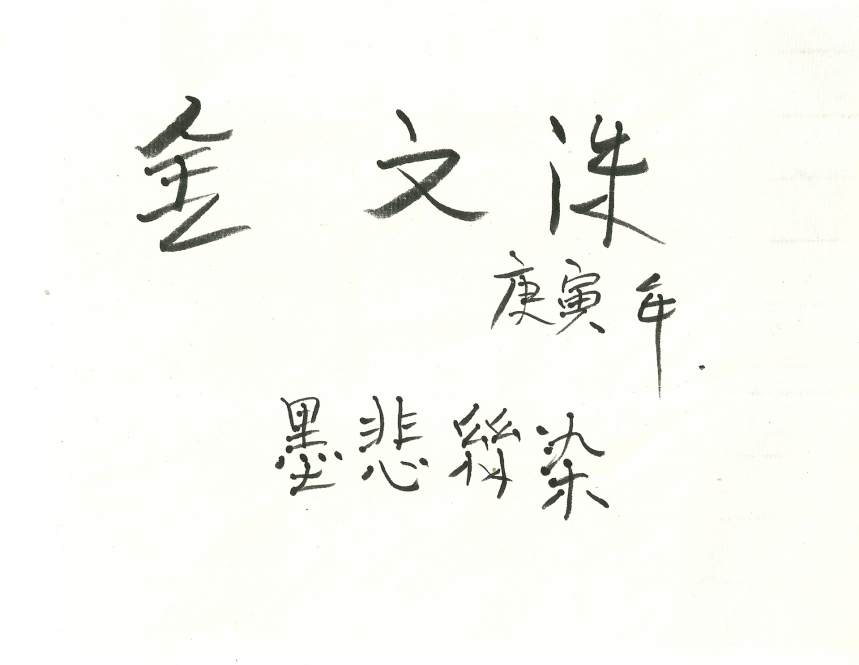 金文洙
庚寅年.
墨悲絲染